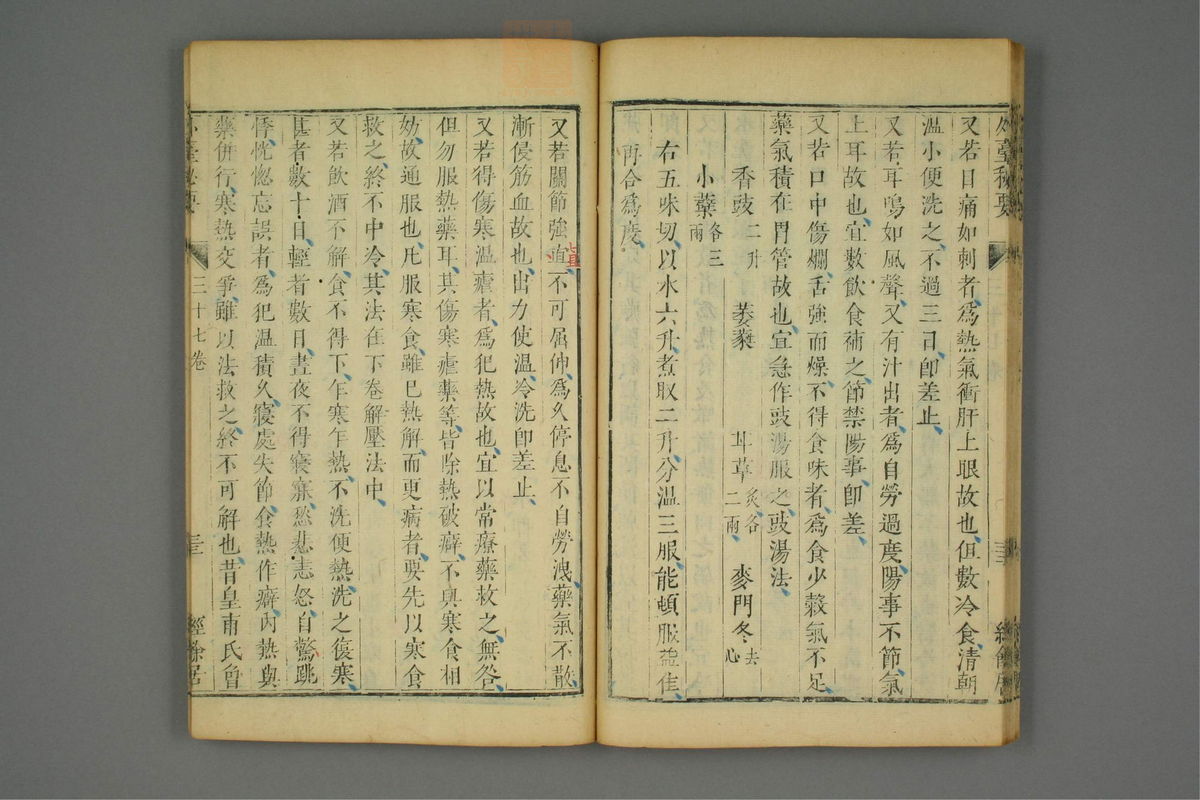 外臺秘要
又若目痛如刺者為熱氣衝肝上眼故也但數冷食清朝
溫小便洗之不過三日即差止
又若耳鳴如風聲又有汁出者為自勞過度陽事不節氣
上耳故也宜數飲食補之節禁陽事即差
又若口中傷爛舌強而燥不得食味者為食少穀氣不足
藥氣積在胃管故也宜急作豉湯服之豉湯法
香豉二升 萎蕤 甘草炙各二兩 麥門冬去心
小蘗各三兩
右五味切以水六升煮取二升分溫三服能頓服益佳
再合為度
又若關節強直不可屈伸為久停息不自勞洩藥氣不散
直
漸侵筋血故也出力使溫冷洗即差止
又若得傷寒溫瘧者為犯熱故也宜以常療藥救之無咎
但勿服熱藥耳其傷寒瘧藥等皆除熱破癖不與寒食相
妨故通服也凡服寒食雖已熱解而更病者要先以寒食
救之終不中冷其法在下卷解壓法中
又若飲酒不解食不得下乍寒乍熱不洗便熱洗之復寒
甚者數十日輕者數日晝夜不得寢寐愁悲恚怒自驚跳
悸恍惚忘誤者為犯溫積久寢處失節食熱作癖內熱與
藥併行寒熱交爭雖以法救之終不可解也昔皇甫氏曾
外臺秘要 三十七卷 三 經餘居